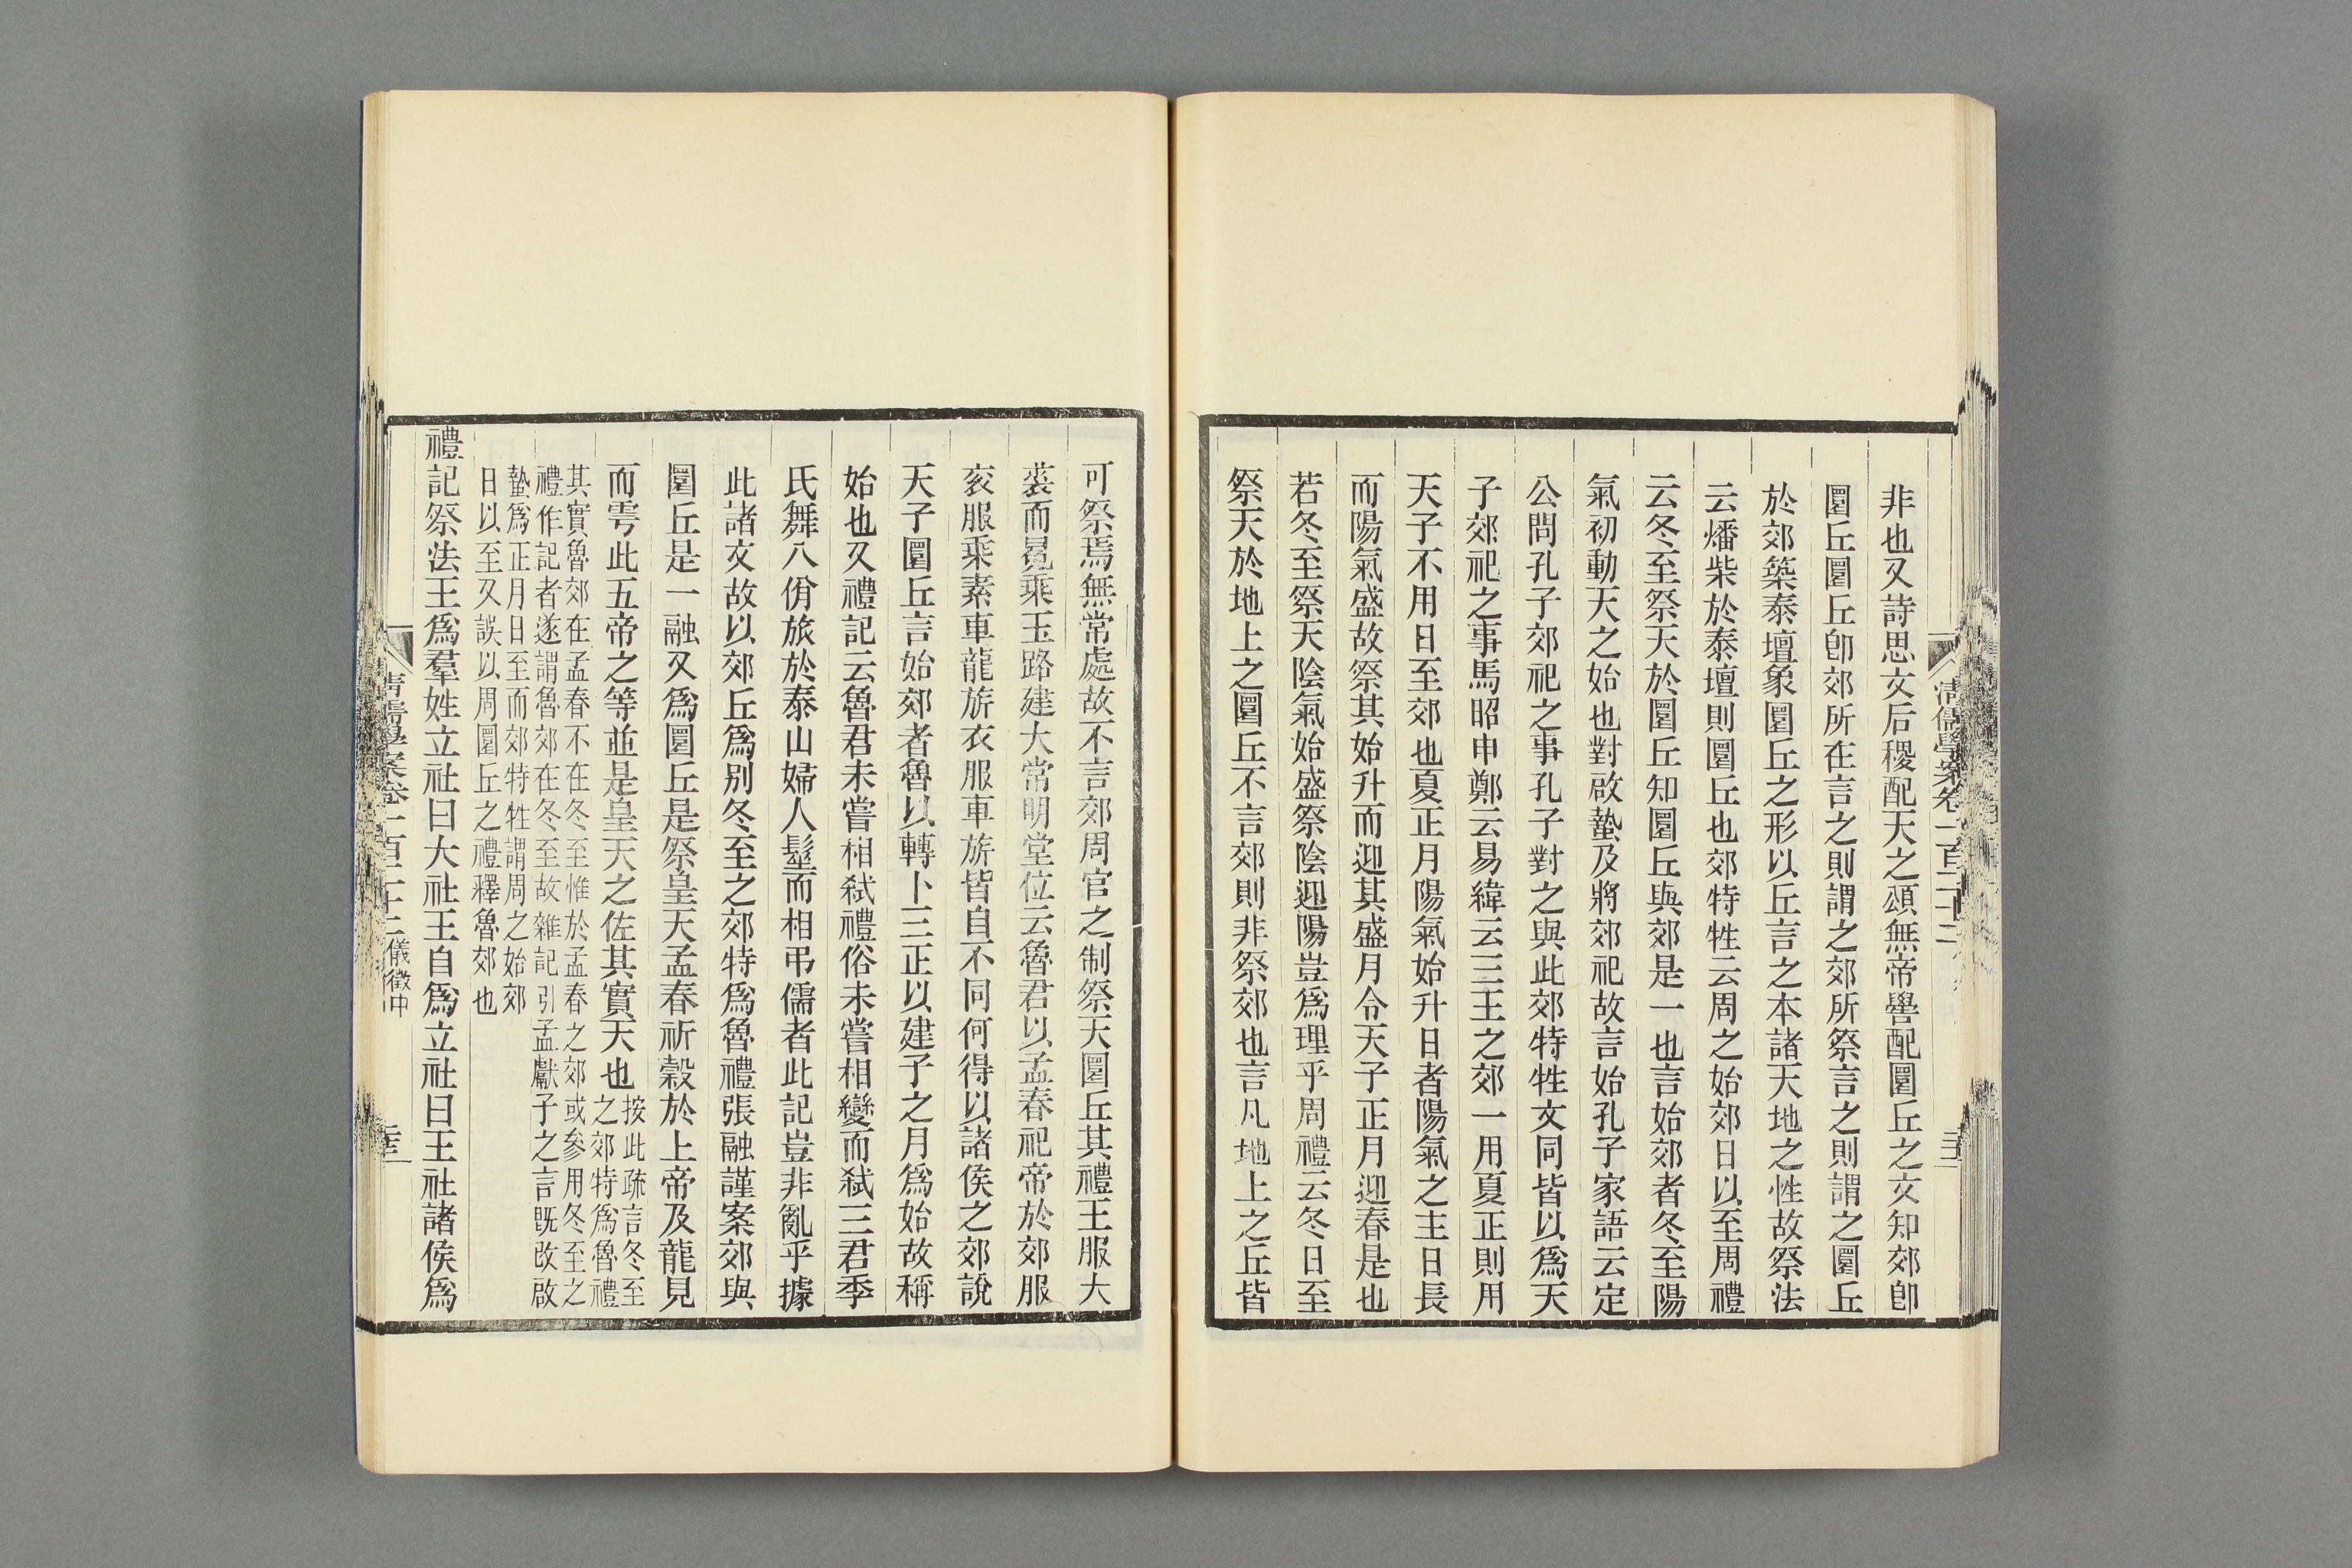 非也又詩思文后稷配天之頌無帝嚳配圜丘之文知郊卽
圜丘圜丘卽郊所在言之則謂之郊所祭言之則謂之圜丘
於郊築泰壇象圜丘之形以丘言之本諸天地之性故祭法
云燔柴於泰壇則圜丘也郊特牲云周之始郊日以至周禮
云冬至祭天於圜丘知圜丘與郊是一也言始郊者冬至陽
氣初動天之始也對啟蟄及將郊祀故言始孔子家語云定
公問孔子郊祀之事孔子對之與此郊特牲文同皆以爲天
子郊祀之事馬昭申鄭云易緯云三王之郊一用夏正則用
天子不用日至郊也夏正月陽氣始升日者陽氣之主日長
而陽氣盛故祭其始升而迎其盛月令天子正月迎春是也
若冬至祭天陰氣始盛祭陰迎陽豈爲理乎周禮云冬日至
祭天於地上之圜丘不言郊則非祭郊也言凡地上之丘皆
清儒學案卷一百二十二
可祭焉無常處故不言郊周官之制祭天圜丘其禮王服大
裘而冕乘玉路建大常明堂位云魯君以孟春祀帝於郊服
衮服乘素車龍旂衣服車旂皆自不同何得以諸侯之郊說
天子圜丘言始郊者魯以轉卜三正以建子之月爲始故稱
始也又禮記云魯君未嘗相弑禮俗未嘗相變而弑三君季
氏舞八佾旅於泰山婦人髽而相弔儒者此記豈非亂乎據
此諸文故以郊丘爲別冬至之郊特爲魯禮張融謹案郊與
圜丘是一融又爲圜丘是祭皇天孟春祈穀於上帝及龍見
而雩此五帝之等並是皇天之佐其實天也按此疏言冬至
之郊特爲魯禮
其實魯郊在孟春不在冬至惟於孟春之郊或參用冬至之
禮作記者遂謂魯郊在冬至故雜記引孟獻子之言既改啟
蟄爲正月日至而郊特牲謂周之始郊
日以至又誤以周圜丘之禮釋魯郊也
禮記祭法王爲羣姓立社曰大社王自爲立社曰王社諸侯爲
清儒學案卷一百二十二 儀徵中